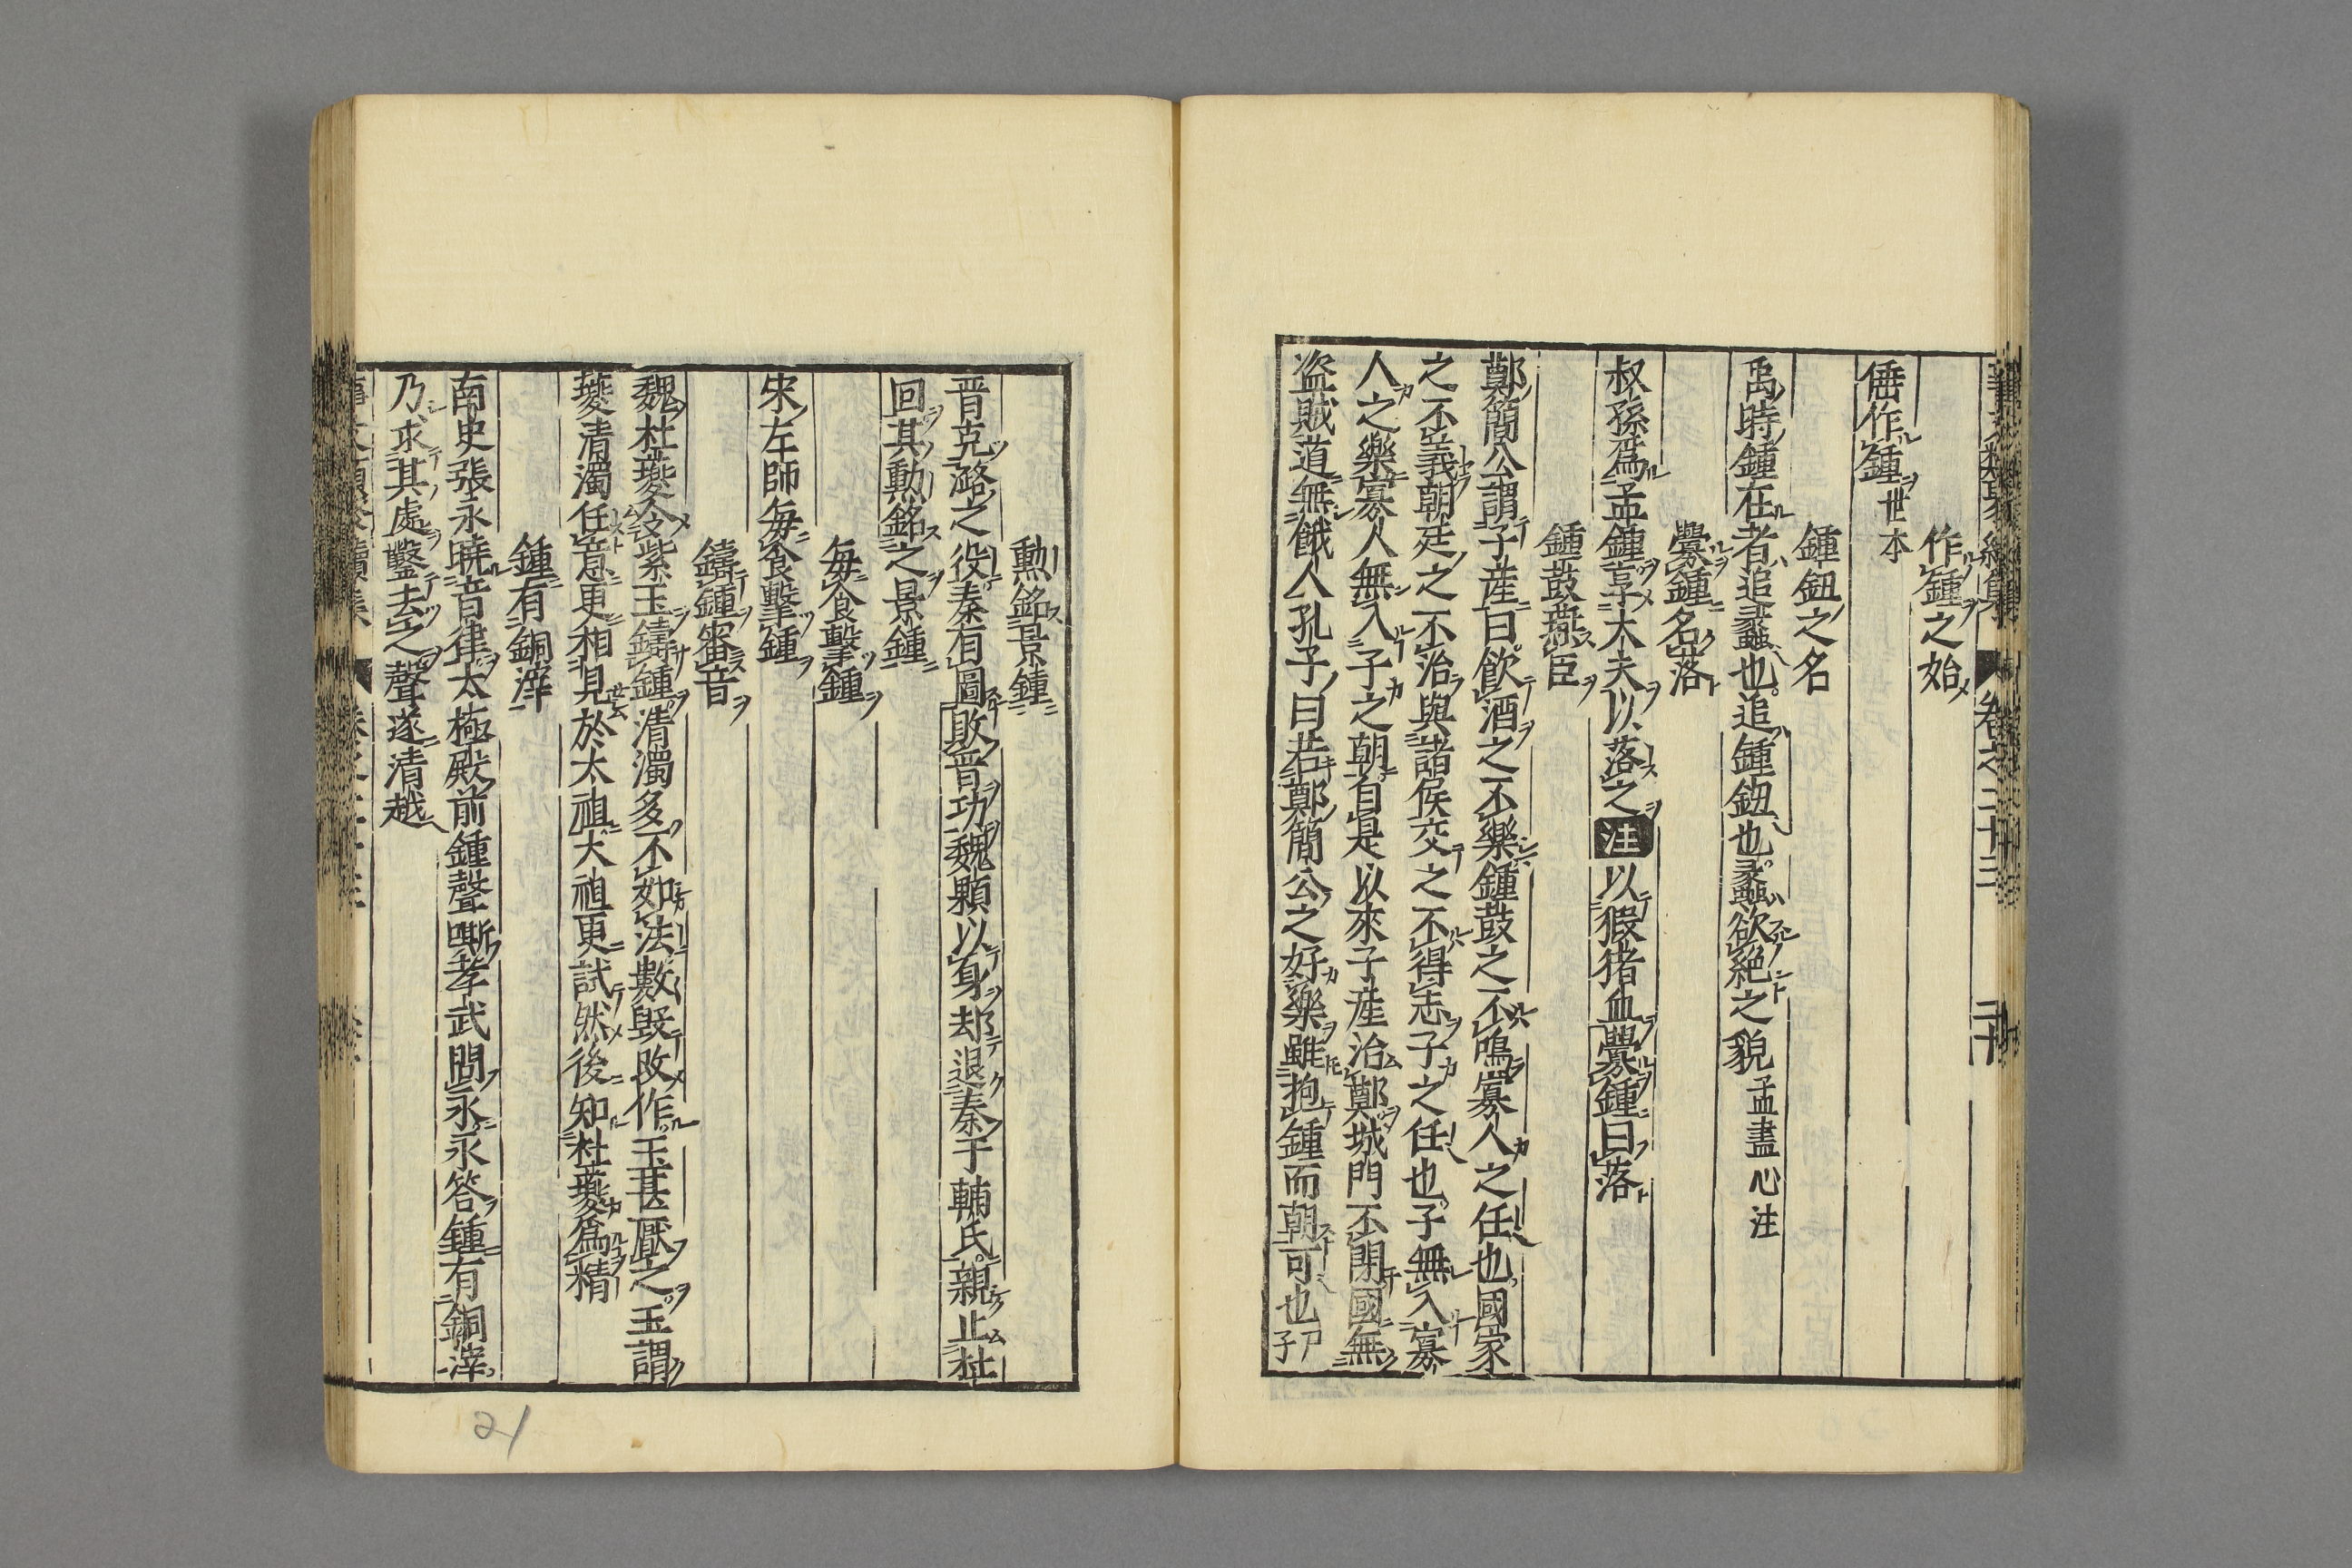 作鍾之始
倕作鍾世本
鍾鈕之名
禹時鍾在者追蠡也追鍾鈕也蠡欲絕之貌孟盡心注
釁鍾名落
叔孫爲孟鍾享大夫以落之注以猳猪血釁鍾曰落
鍾鼓燕臣
鄭簡公謂子産曰飲酒之不樂鍾鼓之不鳴寡人之任也國家
之不義朝廷之不治與諸侯交之不得志子之任也子無入寡
人之樂寡人無入子之朝自是以來子産治鄭城門不閉國無
盜賊道無餓人孔子曰若鄭簡公之好樂雖抱鍾而朝可也尸子
勲銘景鍾
晉克潞之役秦有圖敗晉功魏顆以身却退秦于輔氏親止杜
回其勲銘之景鍾
每食擊鍾
宋左師每食擊鍾
鑄鍾審音
魏杜夔令柴玉鑄鍾清濁多不如法數毀改作玉甚厭之玉謂
夔清濁任意更相見於太祖大祖更試然後知杜夔爲精
鍾有銅滓
南史張永曉音律太極殿前鍾聲嘶孝武問永永答鍾有銅滓
乃求其處鑿去之聲遂清越
21